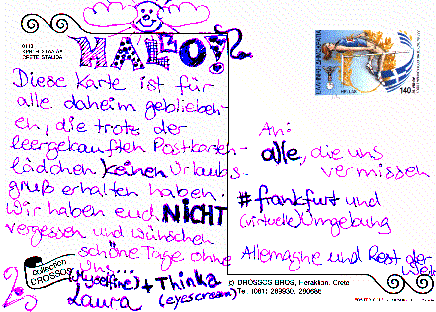 HALLO!
CRETE STALIDA
Diese Karte ist für
alle daheim geblieben-
en, die trotz der
leergekauften Postkarten-
lädchen keinen Urlaubs-
gruß erhalten haben.
Wir haben euch NICHT
vergessen und wünschen
schöne Tage ohne
(Myselfine) + Thinka
Laura (eyescream)
collection
DROSSOS
HELLAS
140
An:
alle, die uns
vermissen
#frankfurt und
(virtuelle) Umgebung
Allemagne und Rest der
Welt
(c) DROSSOS BROS, Heraklion, Crete
Tel. (081) 289930, 280686